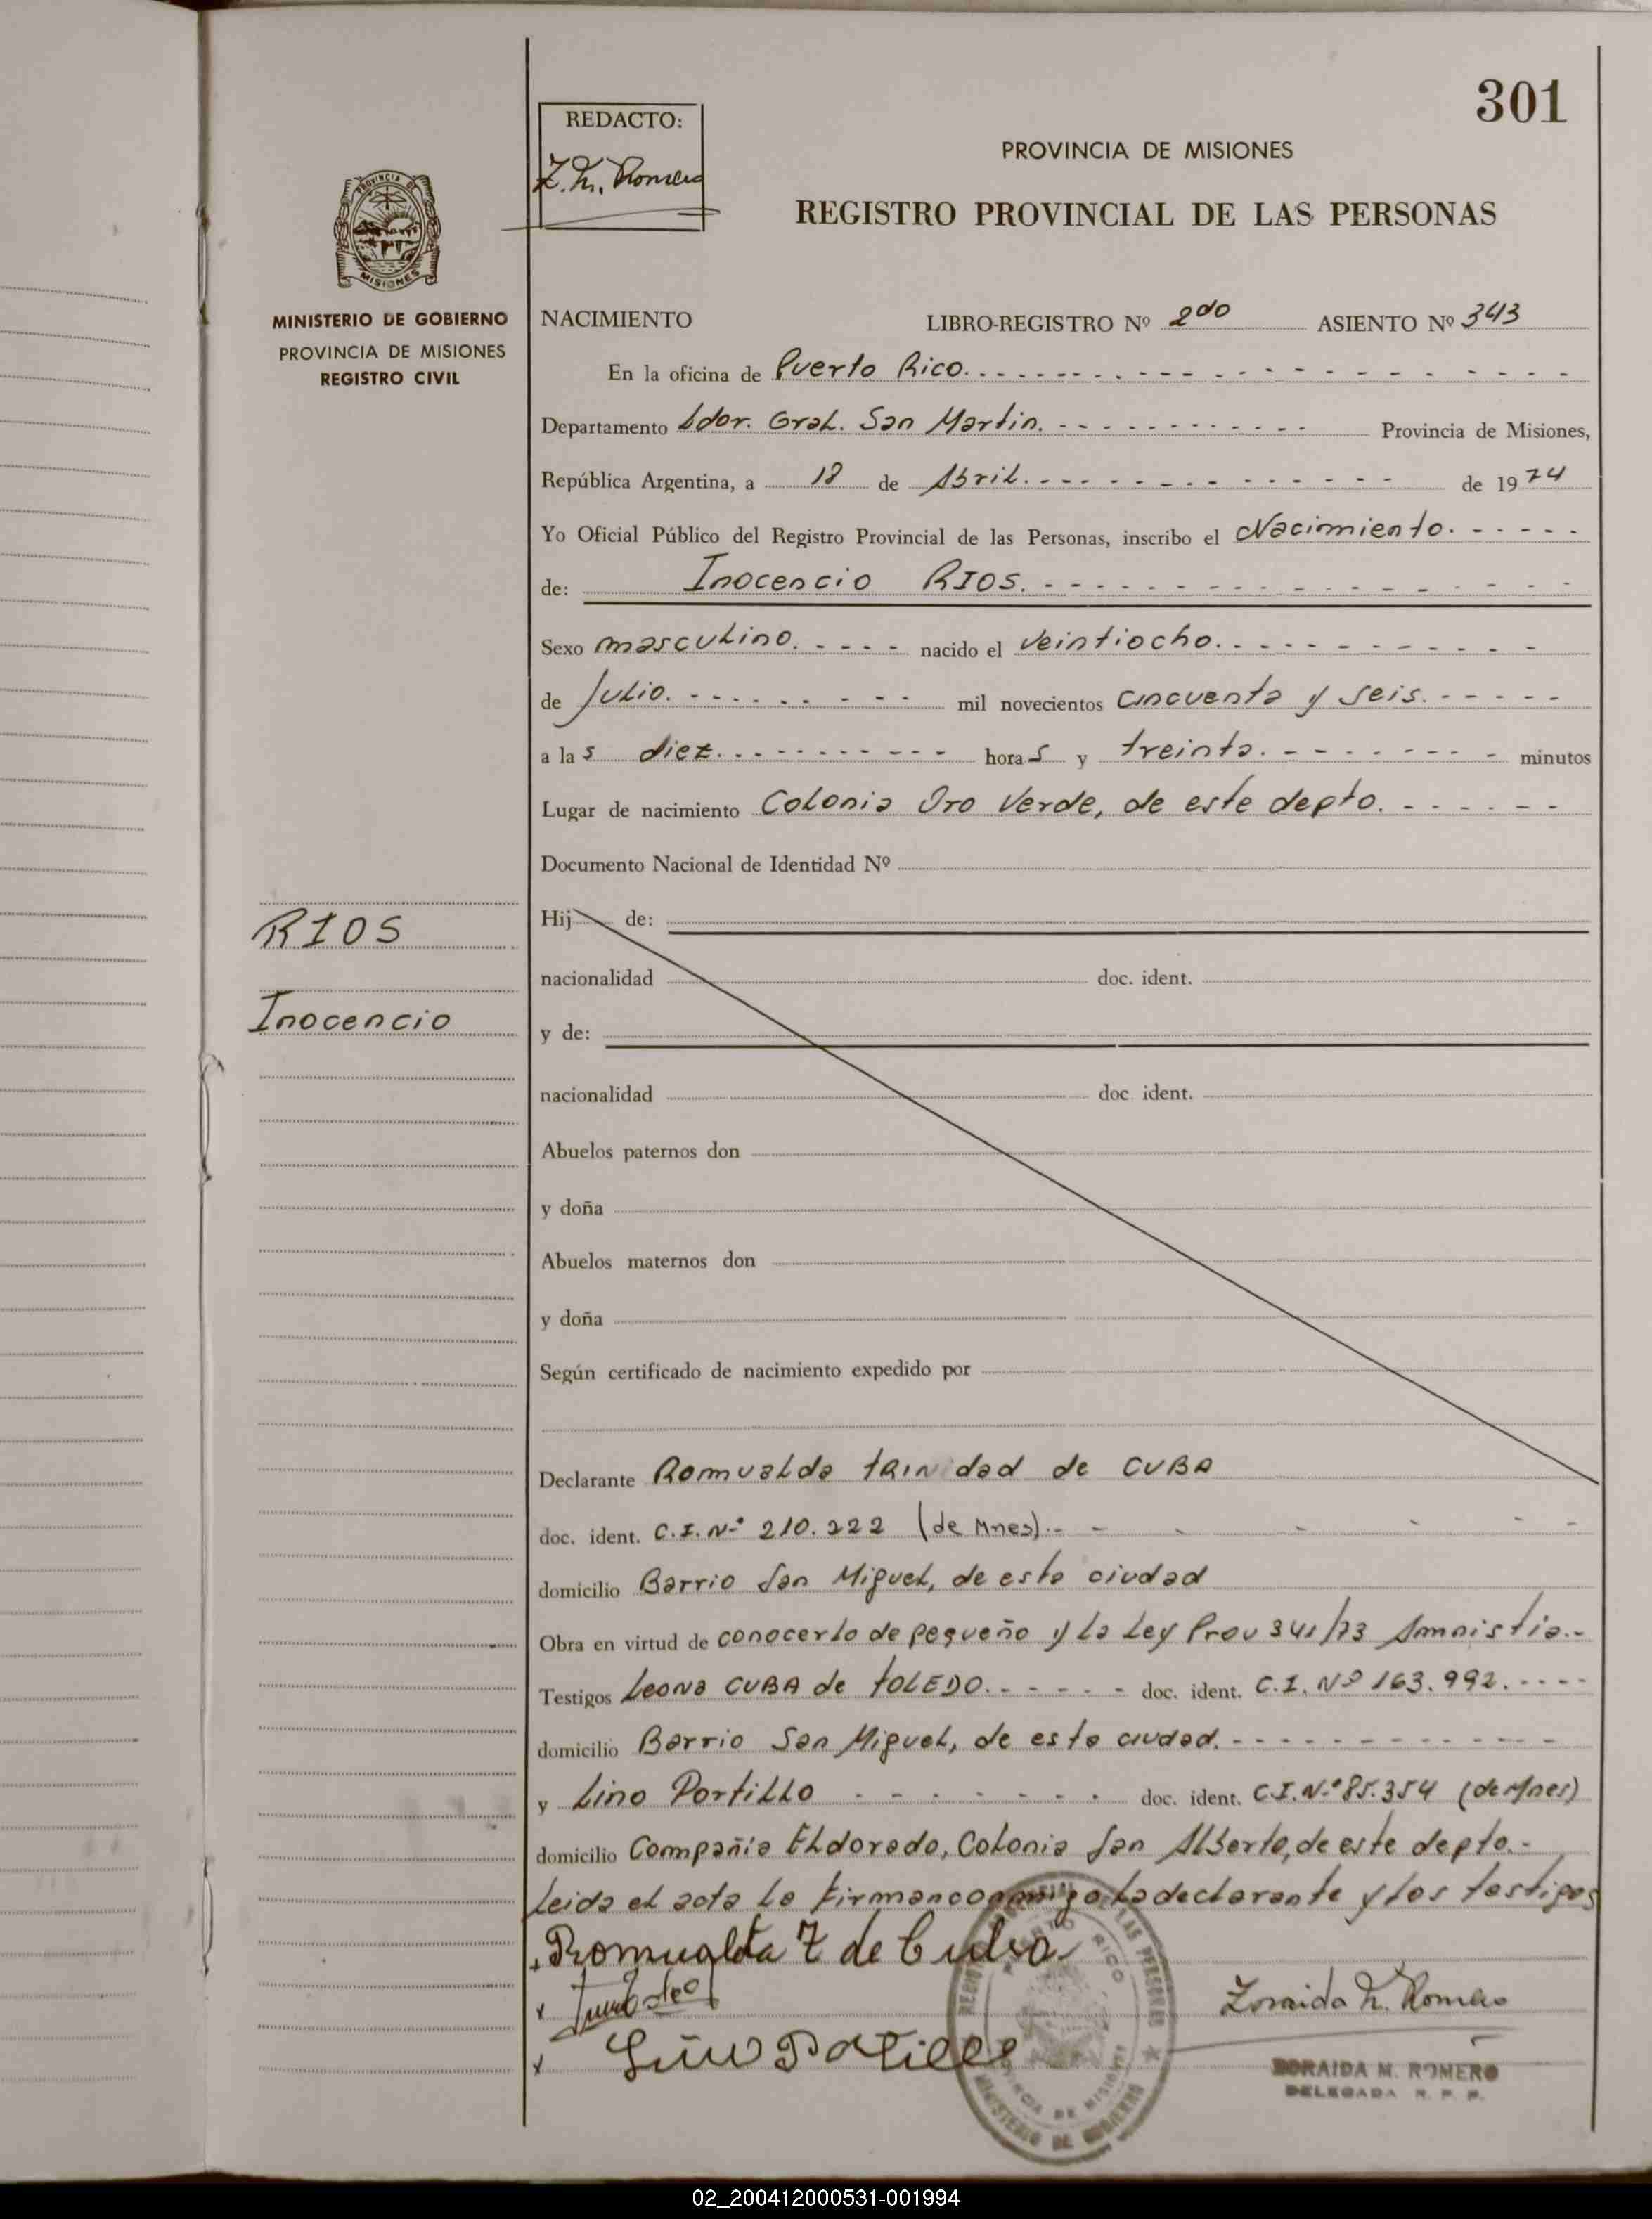 301
REDACTO:
Z. M. Romero
PROVINCIA DE MISIONES
REGISTRO PROVINCIAL DE LAS PERSONAS
PROVINCIA DE
MISIONES
MINISTERIO DE GOBIERNO
PROVINCIA DE MISIONES
REGISTRO CIVIL
NACIMIENTO LIBRO-REGISTRO Nº 2do ASIENTO Nº 343
En la oficina de Puerto Rico.
Departamento Ldor. Gral. San Martin. Provincia de Misiones,
República Argentina, a 18 de Abril. de 1974
Yo Oficial Público del Registro Provincial de las Personas, inscribo el Nacimiento.
de: Inocencio RIOS.
Sexo masculino. nacido el veintiocho.
de Julio. mil novecientos cincuenta y seis.
a las diez. horas y treinta. minutos
Lugar de nacimiento Colonia Oro Verde, de este depto.
Documento Nacional de Identidad Nº
RIOS
Inocencio
Hij de:
nacionalidad doc. ident.
y de:
nacionalidad doc. ident.
Abuelos paternos don
y doña
Abuelos maternos don
y doña
Según certificado de nacimiento expedido por
Declarante Romualda tRINidad de CUBA
doc. ident. C.I. Nº 210.222 (de Mnes).
domicilio Barrio San Miguel, de esta ciudad
Obra en virtud de conocerlo de pequeño y la Ley Prov 341/73 Amnistia.-
Testigos Leona CUBA de tOLEDO. doc. ident. C.I. Nº 163.992.
domicilio Barrio San Miguel, de esta ciudad.
y Lino PortiLLo doc. ident. C.I. N.º 85.354 (de Mnes)
domicilio Compañia Eldorado, Colonia San Alberto, de este depto.-
Leida el acta la firman conmigo la declarante y los testigos
Romualda T de Cuba
Lino Portillo
Zoraida M. Romero
ZORAIDA M. ROMERO
DELEGADA R. P. P.
PUERTO RICO
PROVINCIA DE MISIONES
MINISTERIO DE GOBIERNO
02_200412000531-001994